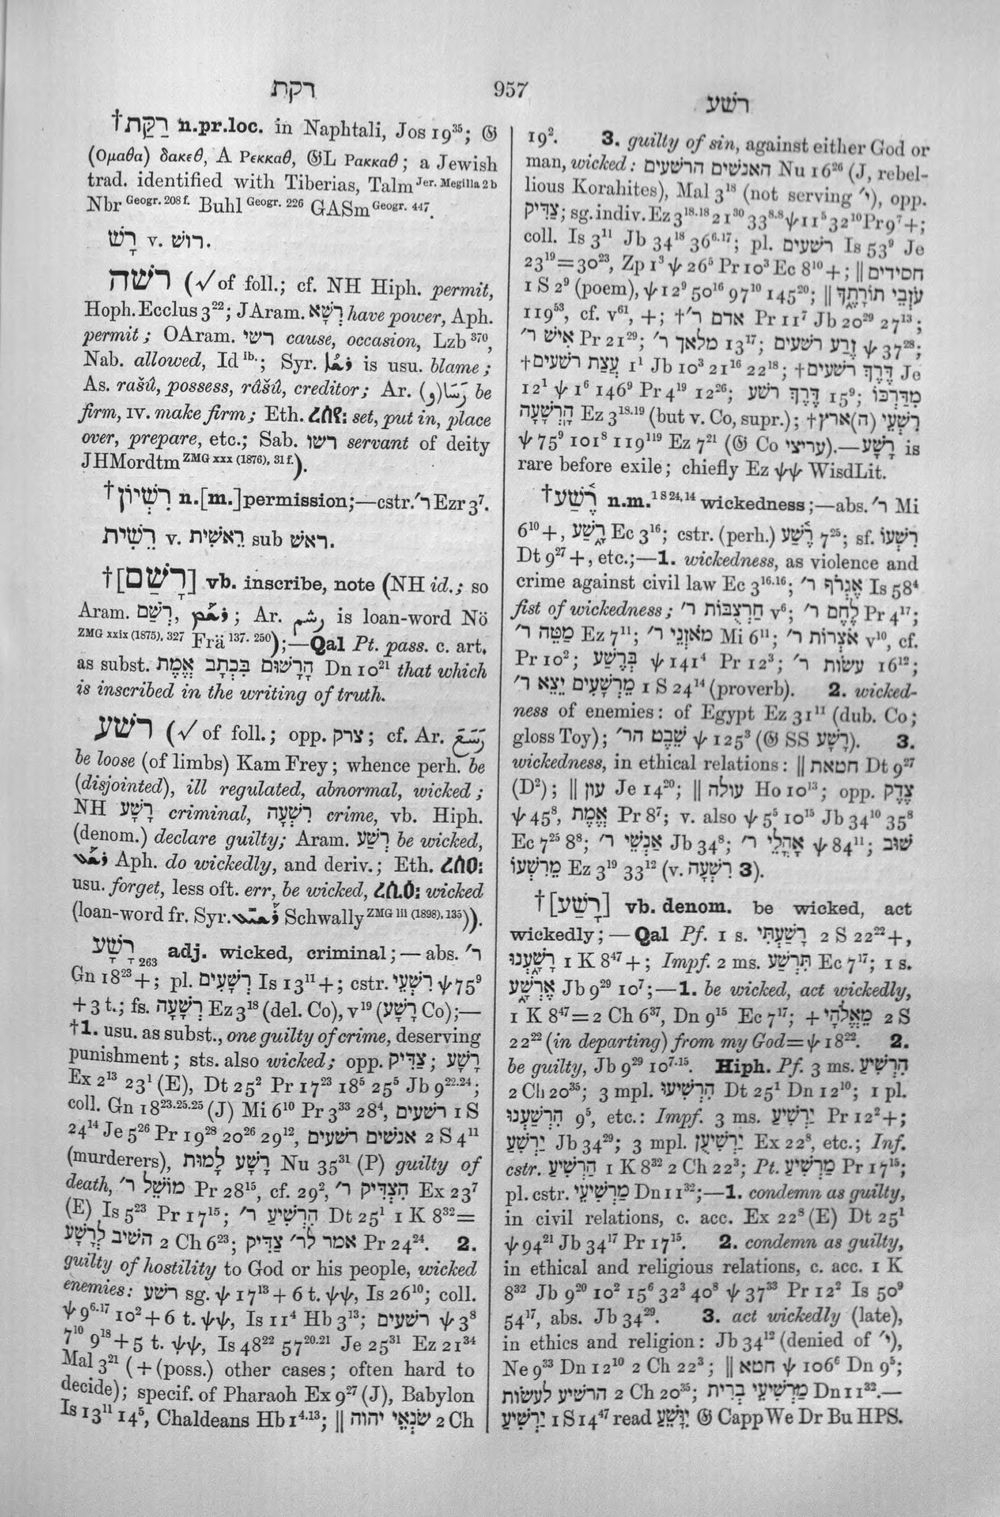 רקת
957
רשע
† רַקַּת n.pr.loc. in Naphtali, Jos 19³⁵; 𝔊
(Ομαθα) δακεθ, A Ρεκκαθ, 𝔊L Ρακκαθ; a Jewish
trad. identified with Tiberias, Talm Jer. Megilla 2 b
Nbr Geogr. 208 f. Buhl Geogr. 226 GASm Geogr. 447.
רָשׁ v. רושׁ.
רשׁה (√ of foll.; cf. NH Hiph. permit,
Hoph. Ecclus 3²²; JAram. רְשָׁא have power, Aph.
permit; OAram. רשי cause, occasion, Lzb ³⁷⁰,
Nab. allowed, Id ib.; Syr. is usu. blame;
As. rašû, possess, râšû, creditor; Ar. be
firm, IV. make firm; Eth. set, put in, place
over, prepare, etc.; Sab. רשו servant of deity
JHMordtm ZMG xxx (1876), 31 f.).
† רִשְׁיוֹן n.[m.] permission;—cstr. ר׳ Ezr 3⁷.
רֵשִׁית v. רֵאשִׁית sub ראשׁ.
† [רָשַׁם] vb. inscribe, note (NH id.; so
Aram. רְשַׁם, ; Ar. is loan-word Nö
ZMG xxix (1875), 327 Frä 137. 250);—Qal Pt. pass. c. art.
as subst. הָרָשׁוּם בִּכְתָב אֱמֶת Dn 10²¹ that which
is inscribed in the writing of truth.
רשׁע (√ of foll.; opp. צדק; cf. Ar.
be loose (of limbs) Kam Frey; whence perh. be
(disjointed), ill regulated, abnormal, wicked;
NH רָשָׁע criminal, רִשְׁעָה crime, vb. Hiph.
(denom.) declare guilty; Aram. רְשַׁע be wicked,
Aph. do wickedly, and deriv.; Eth.
usu. forget, less oft. err, be wicked, wicked
(loan-word fr. Syr. Schwally ZMG lii (1898), 135)).
רָשָׁע 263 adj. wicked, criminal;—abs. ר׳
Gn 18²³+; pl. רְשָׁעִים Is 13¹¹+; cstr. רִשְׁעֵי ψ 75⁹
+ 3 t.; fs. רְשָׁעָה Ez 3¹⁸ (del. Co), v¹⁹ (רָשָׁע Co);—
†1. usu. as subst., one guilty of crime, deserving
punishment; sts. also wicked; opp. צַדִּיק; רָשָׁע
Ex 2¹³ 23¹ (E), Dt 25² Pr 17²³ 18⁵ 25⁵ Jb 9²²·²⁴;
coll. Gn 18²³·²⁵·²⁵ (J) Mi 6¹⁰ Pr 3³³ 28⁴, רשעים 1 S
24¹⁴ Je 5²⁶ Pr 19²⁸ 20²⁶ 29¹², אנשים רשעים 2 S 4¹¹
(murderers), רָשָׁע לָמוּת Nu 35³¹ (P) guilty of
death, מוֹשֵׁל ר׳ Pr 28¹⁵, cf. 29², הִצְדִּיק ר׳ Ex 23⁷
(E) Is 5²³ Pr 17¹⁵; הִרְשִׁיעַ ר׳ Dt 25¹ 1 K 8³²=
השיב לְרָשָׁע 2 Ch 6²³; אמר לר׳ צַדִּיק Pr 24²⁴. 2.
guilty of hostility to God or his people, wicked
enemies: רשע sg. ψ 17¹³ + 6 t. ψψ, Is 26¹⁰; coll.
ψ 9⁶·¹⁷ 10² + 6 t. ψψ, Is 11⁴ Hb 3¹³; רשעים ψ 3⁸
7¹⁰ 9¹⁸ + 5 t. ψψ, Is 48²² 57²⁰·²¹ Je 25³¹ Ez 21³⁴
Mal 3²¹ (+ (poss.) other cases; often hard to
decide); specif. of Pharaoh Ex 9²⁷ (J), Babylon
Is 13¹¹ 14⁵, Chaldeans Hb 1⁴·¹³; ‖ שֹׂנְאֵי יהוה 2 Ch
19². 3. guilty of sin, against either God or
man, wicked: האנשים הרשעים Nu 16²⁶ (J, rebel-
lious Korahites), Mal 3¹⁸ (not serving י׳), opp.
צַדִּיק; sg. indiv. Ez 3¹⁸·¹⁸ 21³⁰ 33⁸·⁸ ψ 11⁵ 32¹⁰ Pr 9⁷ +;
coll. Is 3¹¹ Jb 34¹⁸ 36⁶·¹⁷; pl. רשעים Is 53⁹ Je
23¹⁹=30²³, Zp 1³ ψ 26⁵ Pr 10³ Ec 8¹⁰ +; ‖ חסידים
1 S 2⁹ (poem), ψ 12⁹ 50¹⁶ 97¹⁰ 145²⁰; ‖ עֹזְבֵי תוֹרָתֶךָ
119⁵³, cf. v⁶¹, +; † אדם ר׳ Pr 11⁷ Jb 20²⁹ 27¹³;
אִישׁ ר׳ Pr 21²⁹; מלאך ר׳ 13¹⁷; זֶרַע רשעים ψ 37²⁸;
† עֲצַת רשעים 1¹ Jb 10³ 21¹⁶ 22¹⁸; † דֶּרֶךְ רשעים Je
12¹ ψ 1⁶ 146⁹ Pr 4¹⁹ 12²⁶; דֶּרֶךְ רשע 15⁹; מִדַּרְכּוֹ
הָרְשָׁעָה Ez 3¹⁸·¹⁹ (but v. Co, supr.); † רִשְׁעֵי (ה)ארץ
ψ 75⁹ 101⁸ 119¹¹⁹ Ez 7²¹ (𝔊 Co עריצי).—רָשָׁע is
rare before exile; chiefly Ez ψψ WisdLit.
† רֶשַׁע n.m. 1 S 24, 14 wickedness;—abs. ר׳ Mi
6¹⁰ +, רָשַׁע Ec 3¹⁶; cstr. (perh.) רֶשַׁע 7²⁵; sf. רִשְׁעוֹ
Dt 9²⁷ +, etc.;—1. wickedness, as violence and
crime against civil law Ec 3¹⁶·¹⁶; אֶגְרֹף ר׳ Is 58⁴
fist of wickedness; חַרְצֻבּוֹת ר׳ v⁶; לֶחֶם ר׳ Pr 4¹⁷;
מַטֵּה ר׳ Ez 7¹¹; מֹאזְנֵי ר׳ Mi 6¹¹; אֹצְרוֹת ר׳ v¹⁰, cf.
Pr 10²; בְּרֶשַׁע ψ 141⁴ Pr 12³; עשׂות ר׳ 16¹²;
מֵרְשָׁעִים יֵצֵא ר׳ 1 S 24¹⁴ (proverb). 2. wicked-
ness of enemies: of Egypt Ez 31¹¹ (dub. Co;
gloss Toy); שֵׁבֶט הר׳ ψ 125³ (𝔊 SS רָשָׁע). 3.
wickedness, in ethical relations: ‖ חטאת Dt 9²⁷
(D²); ‖ עון Je 14²⁰; ‖ עולה Ho 10¹³; opp. צֶדֶק
ψ 45⁸, אֱמֶת Pr 8⁷; v. also ψ 5⁵ 10¹⁵ Jb 34¹⁰ 35⁸
Ec 7²⁵ 8⁸; אַנְשֵׁי ר׳ Jb 34⁸; אָהֳלֵי ר׳ ψ 84¹¹; שׁוּב
מֵרִשְׁעוֹ Ez 3¹⁹ 33¹² (v. רִשְׁעָה 3).
† [רָשַׁע] vb. denom. be wicked, act
wickedly;—Qal Pf. 1 s. רָשַׁעְתִּי 2 S 22²² +,
רָשָׁעְנוּ 1 K 8⁴⁷ +; Impf. 2 ms. תִּרְשַׁע Ec 7¹⁷; 1 s.
אֶרְשָׁע Jb 9²⁹ 10⁷;—1. be wicked, act wickedly,
1 K 8⁴⁷=2 Ch 6³⁷, Dn 9¹⁵ Ec 7¹⁷; + מֵאֱלֹהָי 2 S
22²² (in departing) from my God=ψ 18²². 2.
be guilty, Jb 9²⁹ 10⁷·¹⁵. Hiph. Pf. 3 ms. הִרְשִׁיעַ
2 Ch 20³⁵; 3 mpl. הִרְשִׁיעוּ Dt 25¹ Dn 12¹⁰; 1 pl.
הִרְשַׁעְנוּ 9⁵, etc.: Impf. 3 ms. יַרְשִׁיעַ Pr 12² +;
יַרְשִׁעַ Jb 34²⁹; 3 mpl. יַרְשִׁיעֻן Ex 22⁸, etc.; Inf.
cstr. הַרְשִׁיעַ 1 K 8³² 2 Ch 22³; Pt. מַרְשִׁיעַ Pr 17¹⁵;
pl. cstr. מַרְשִׁיעֵי Dn 11³²;—1. condemn as guilty,
in civil relations, c. acc. Ex 22⁸ (E) Dt 25¹
ψ 94²¹ Jb 34¹⁷ Pr 17¹⁵. 2. condemn as guilty,
in ethical and religious relations, c. acc. 1 K
8³² Jb 9²⁰ 10² 15⁶ 32³ 40⁸ ψ 37³³ Pr 12² Is 50⁹
54¹⁷, abs. Jb 34²⁹. 3. act wickedly (late),
in ethics and religion: Jb 34¹² (denied of י׳),
Ne 9³³ Dn 12¹⁰ 2 Ch 22³; ‖ חטא ψ 106⁶ Dn 9⁵;
הרשיע לעשׂות 2 Ch 20³⁵; מַרְשִׁיעֵי בְרִית Dn 11³².—
יַרְשִׁיעַ 1 S 14⁴⁷ read יִוָּשֵׁעַ 𝔊 Capp We Dr Bu HPS.